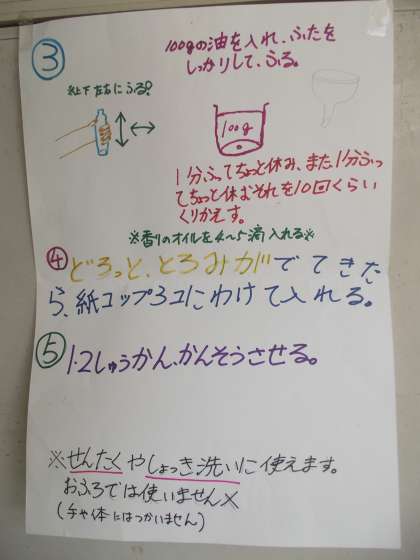 ③
100gの油を入れ、ふたを
しっかりして、ふる。
上下左右にふる?
100g
1分ふってちょっと休み、また1分ふっ
てちょっと休むそれを10回くらい
くりかえす。
※香りのオイルを4〜5滴入れる※
④
どろっと、とろみがでてきた
ら、紙コップ3コにわけて入れる。
⑤
1.2しゅうかん、かんそうさせる。
※せんたくやしょっき洗いに使えます。
おふろでは使いません×
(手や体にはつかいません)